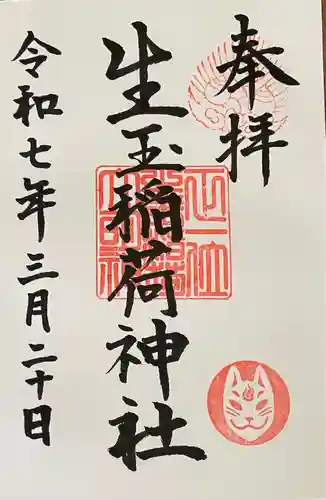 奉拝
生玉稲荷神社
令和七年三月二十日